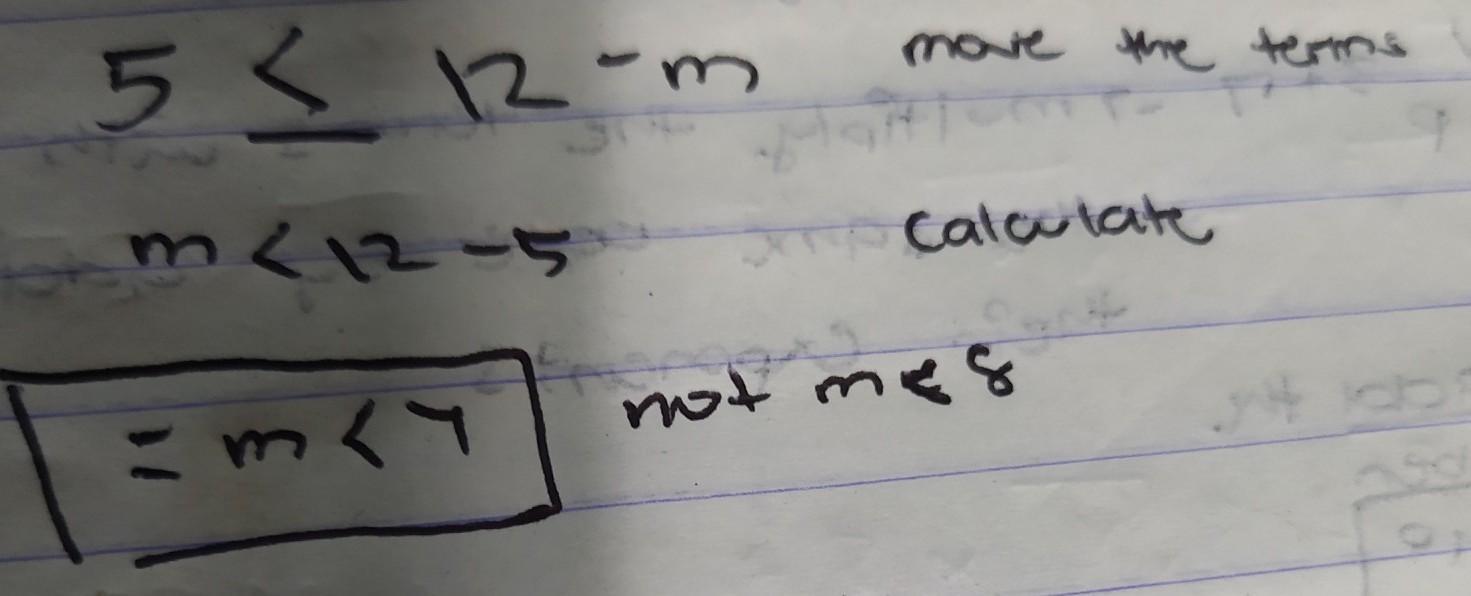 5 ≤ 12 - m move the terms
m < 12 - 5 calculate
= m < 7 not m < 8